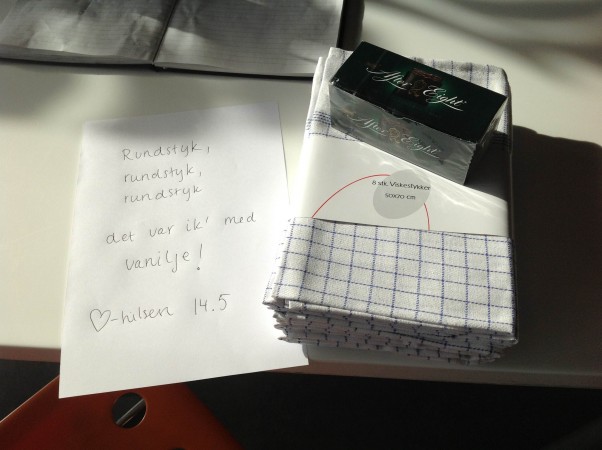 Rundstyk,
rundstyk,
rundstyk
det var ik' med
vanilje!
♡-hilsen 14.5
After Eight
After Eight
8 stk. Viskestykker
50x70 cm